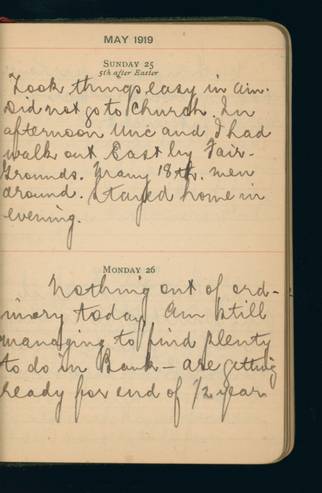 MAY 1919
SUNDAY 25
5th after Easter
Took things easy in a.m.
Did not go to Church. In
afternoon Unc and I had
walk out East by Fair-
Grounds. Many 18th. men
around. Stayed home in
evening.
MONDAY 26
Nothing out of ord-
inary today. Am still
managing to find plenty
to do in Bank - are getting
ready for end of 1/2 year